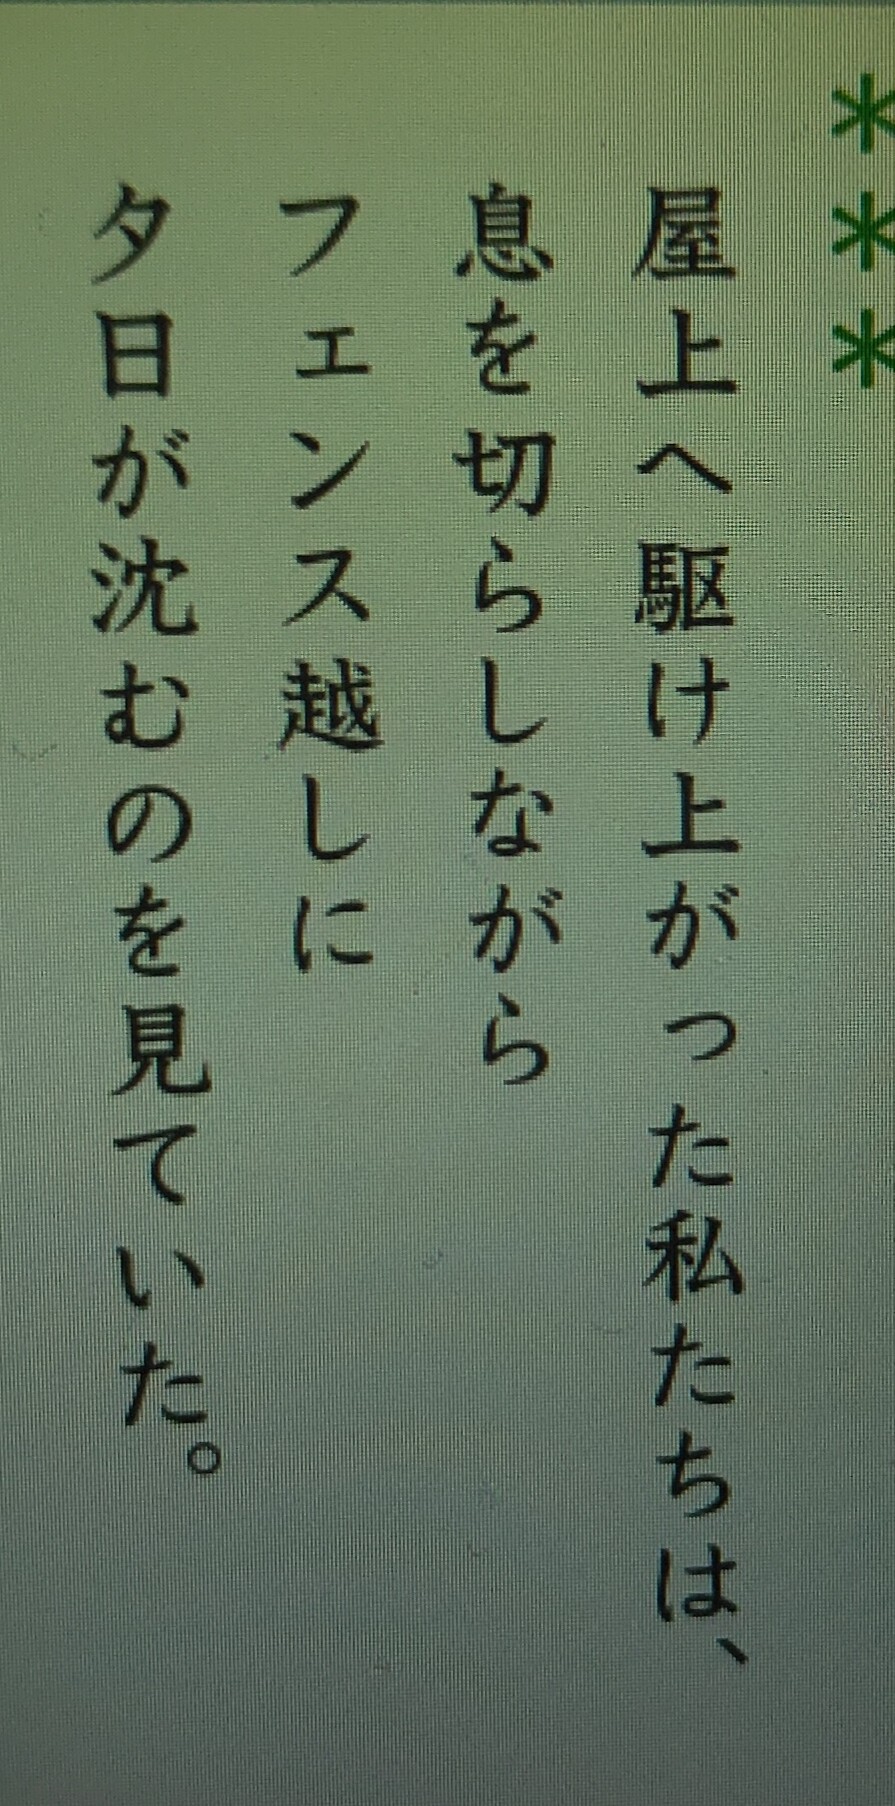 ***
屋上へ駆け上がった私たちは、
息を切らしながら
フェンス越しに
夕日が沈むのを見ていた。